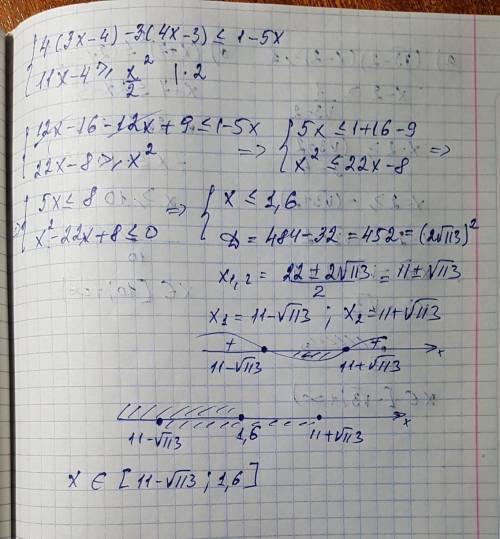 { 4(3x-4)-3(4x-3) ≤ 1-5x
{ 11x-4 ≥ x²/2 | · 2
{ 12x-16-12x+9 ≤ 1-5x => { 5x ≤ 1+16-9
{ 22x-8 ≥ x² { x² ≤ 22x-8 =>
{ 5x ≤ 8 => { x ≤ 1,6
{ x²-22x+8 ≤ 0 { D = 484-32 = 452 = (2√113)²
x₁,₂ = (22 ± 2√113)/2 = 11 ± √113
x₁ = 11-√113 ; x₂ = 11+√113
+ - + x
11-√113 11+√113
11-√113 1,6 11+√113 x
x ∈ [11-√113 ; 1,6]